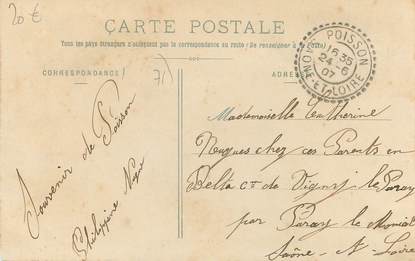 20 €
CARTE POSTALE
Tous les pays étrangers n'acceptent pas la correspondance au recto (Se renseigner à la Poste)
CORRESPONDANCE
71
ADRESSE
POISSON
16 35
24-6
07
SAONE-ET-LOIRE
Souvenir de Poisson
Philippine
Mademoiselle Catherine
Nugues chez ces Parents en
Belta Cne de Vigny-le-Paray
par Paray le Monial
Saône-&-Loire